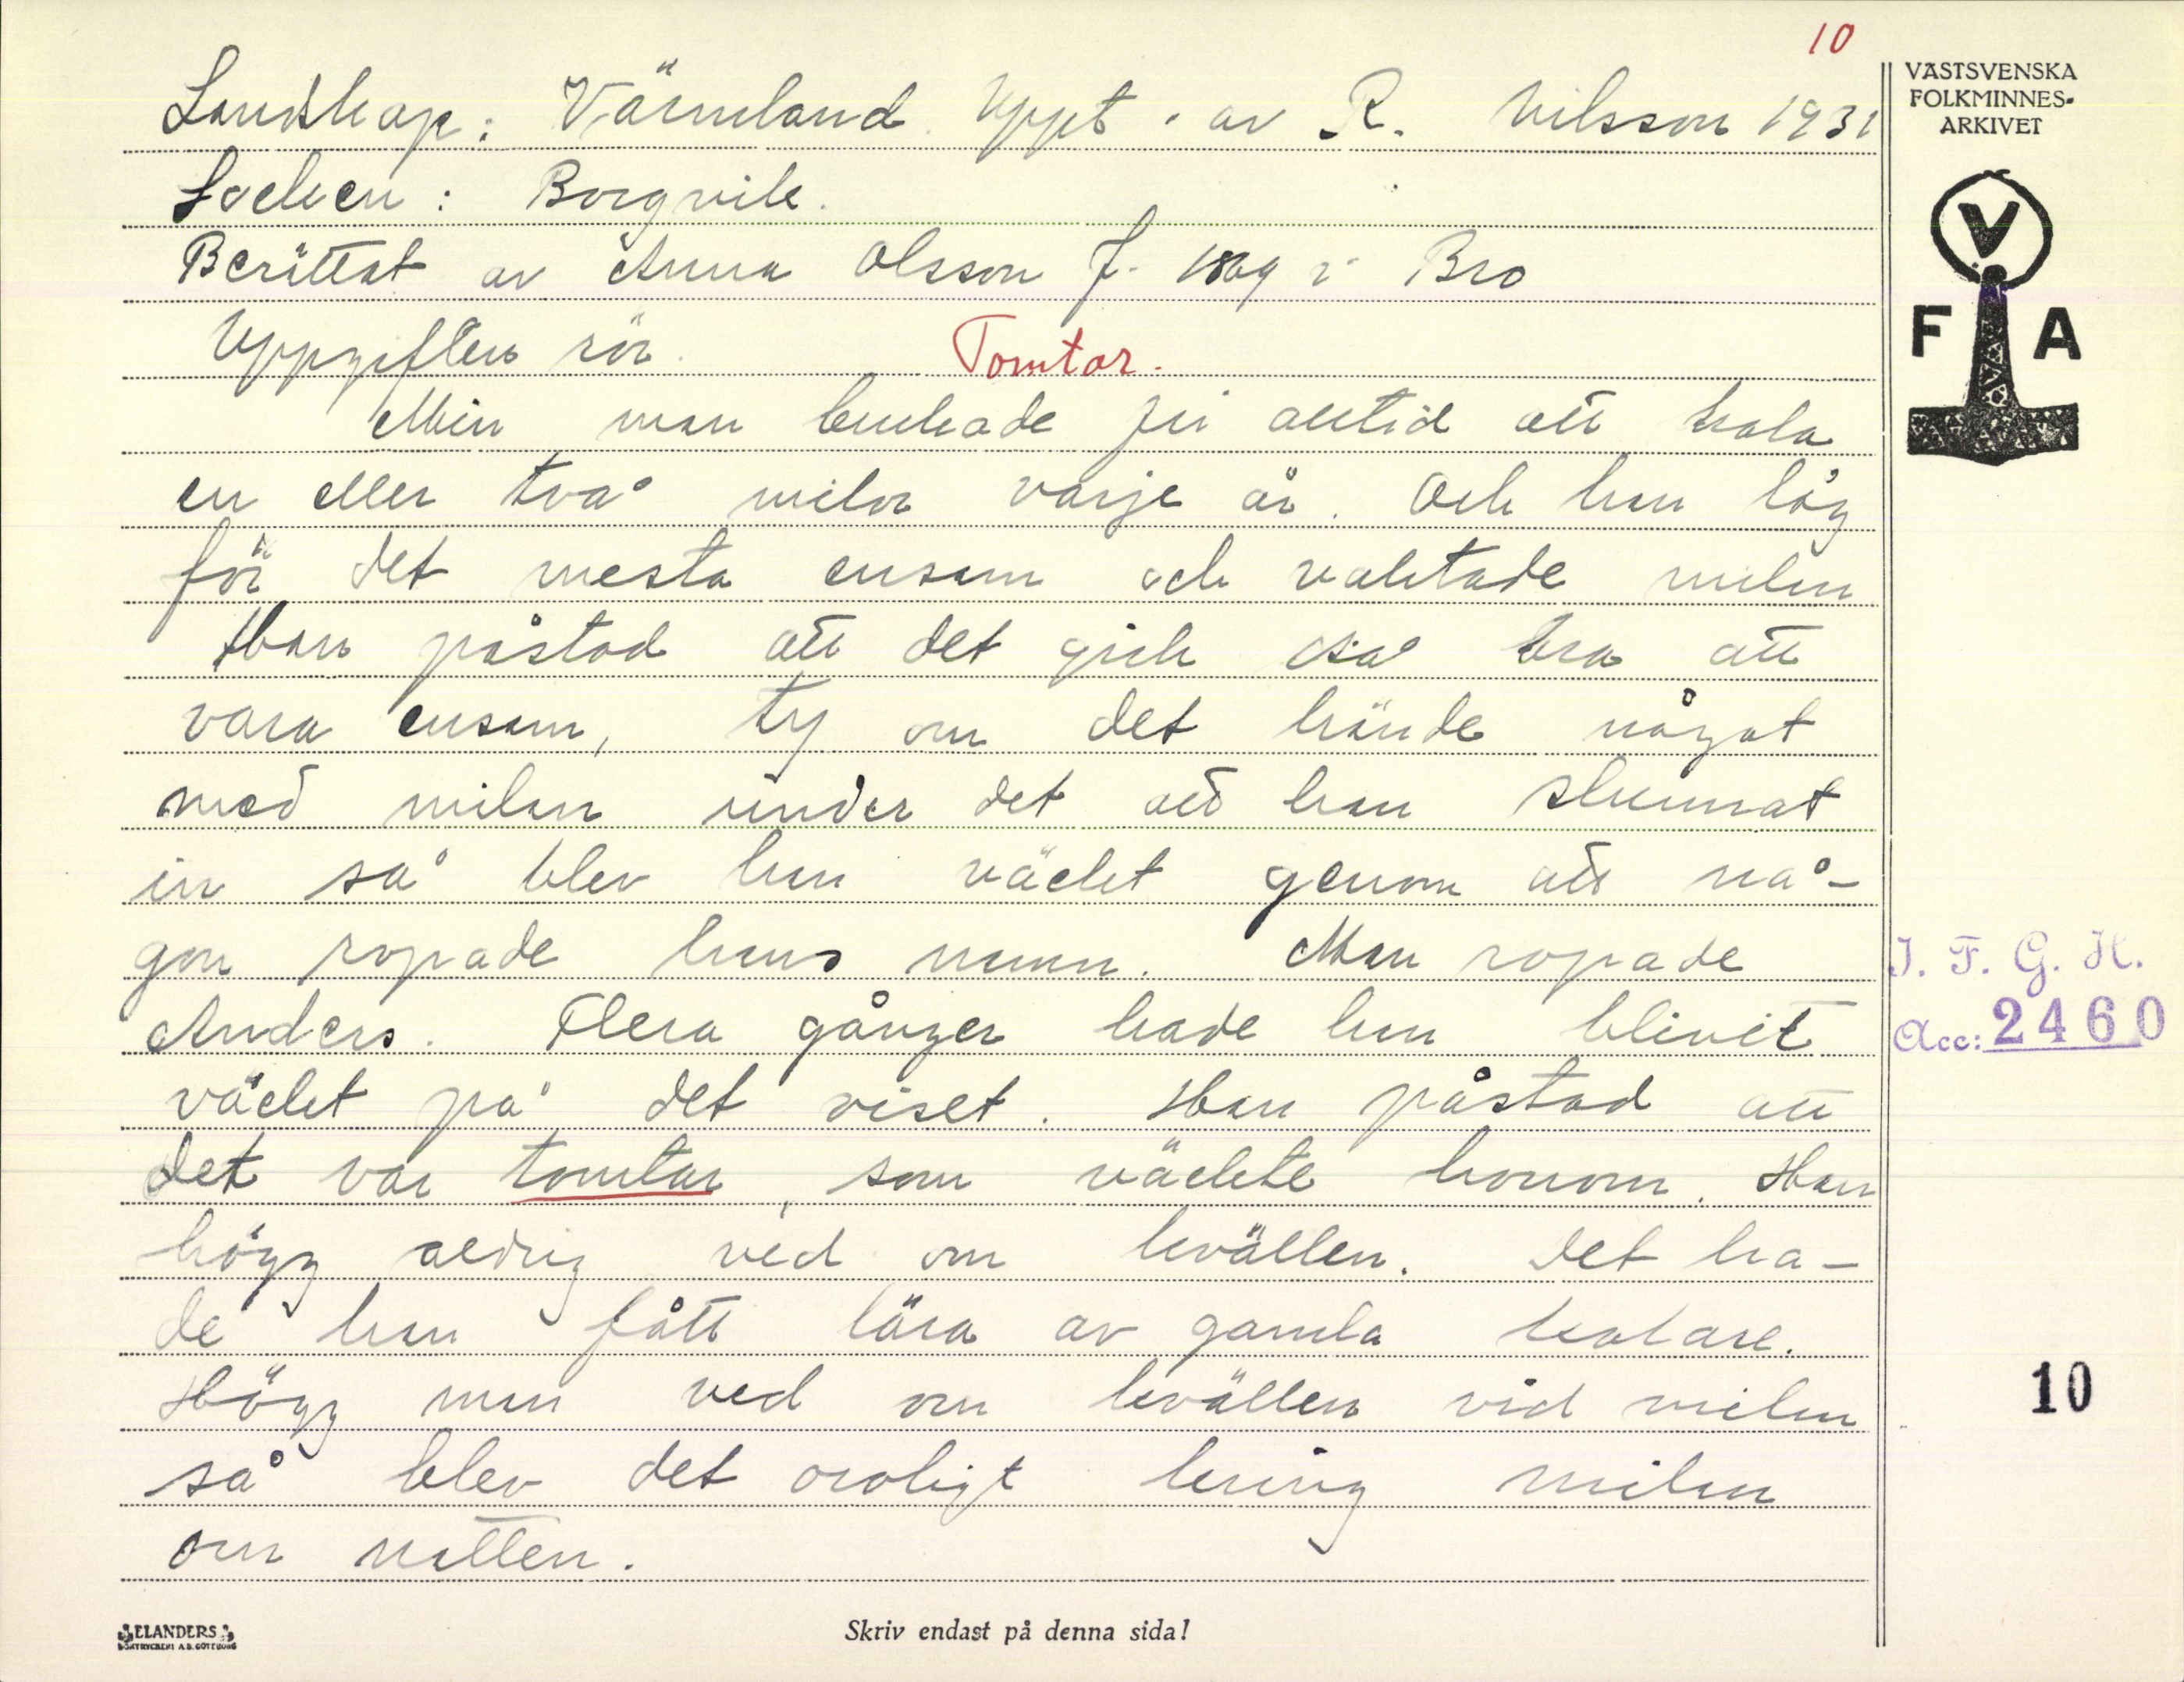 10
Landskap: Värmland Uppt. av R. Nilsson 1931
Socken: Borgvik.
Berättat av Anna Olsson f. 1869 i Bro
Uppgiften rör. Tomtar.
Min man brukade jú alltid att kola
en eller två milor varje år. Och han låg
för det mesta ensam och vaktade milan
Han påstod att det gick så bra att
vara ensam, ty om det hände något
med milan under det att han slumrat
in så blev han väckt genom att nå-
gon ropade hans namn. Man ropade
Anders. Flera gånger hade han blivit
väckt på det viset. Han påstod att
det var tomtar, som väckte honom. Han
högg aldrig ved om kvällen. Det ha-
de han fått lära av gamla kolare.
Högg man ved om kvällen vid milan
så blev det oroligt kring milan
om natten.
VÄSTSVENSKA
FOLKMINNES-
ARKIVET
V
F A
I. F. G. H.
Acc: 2460
10
ELANDERS
BOKTRYCKERI A.B. GÖTEBORG
Skriv endast på denna sida!